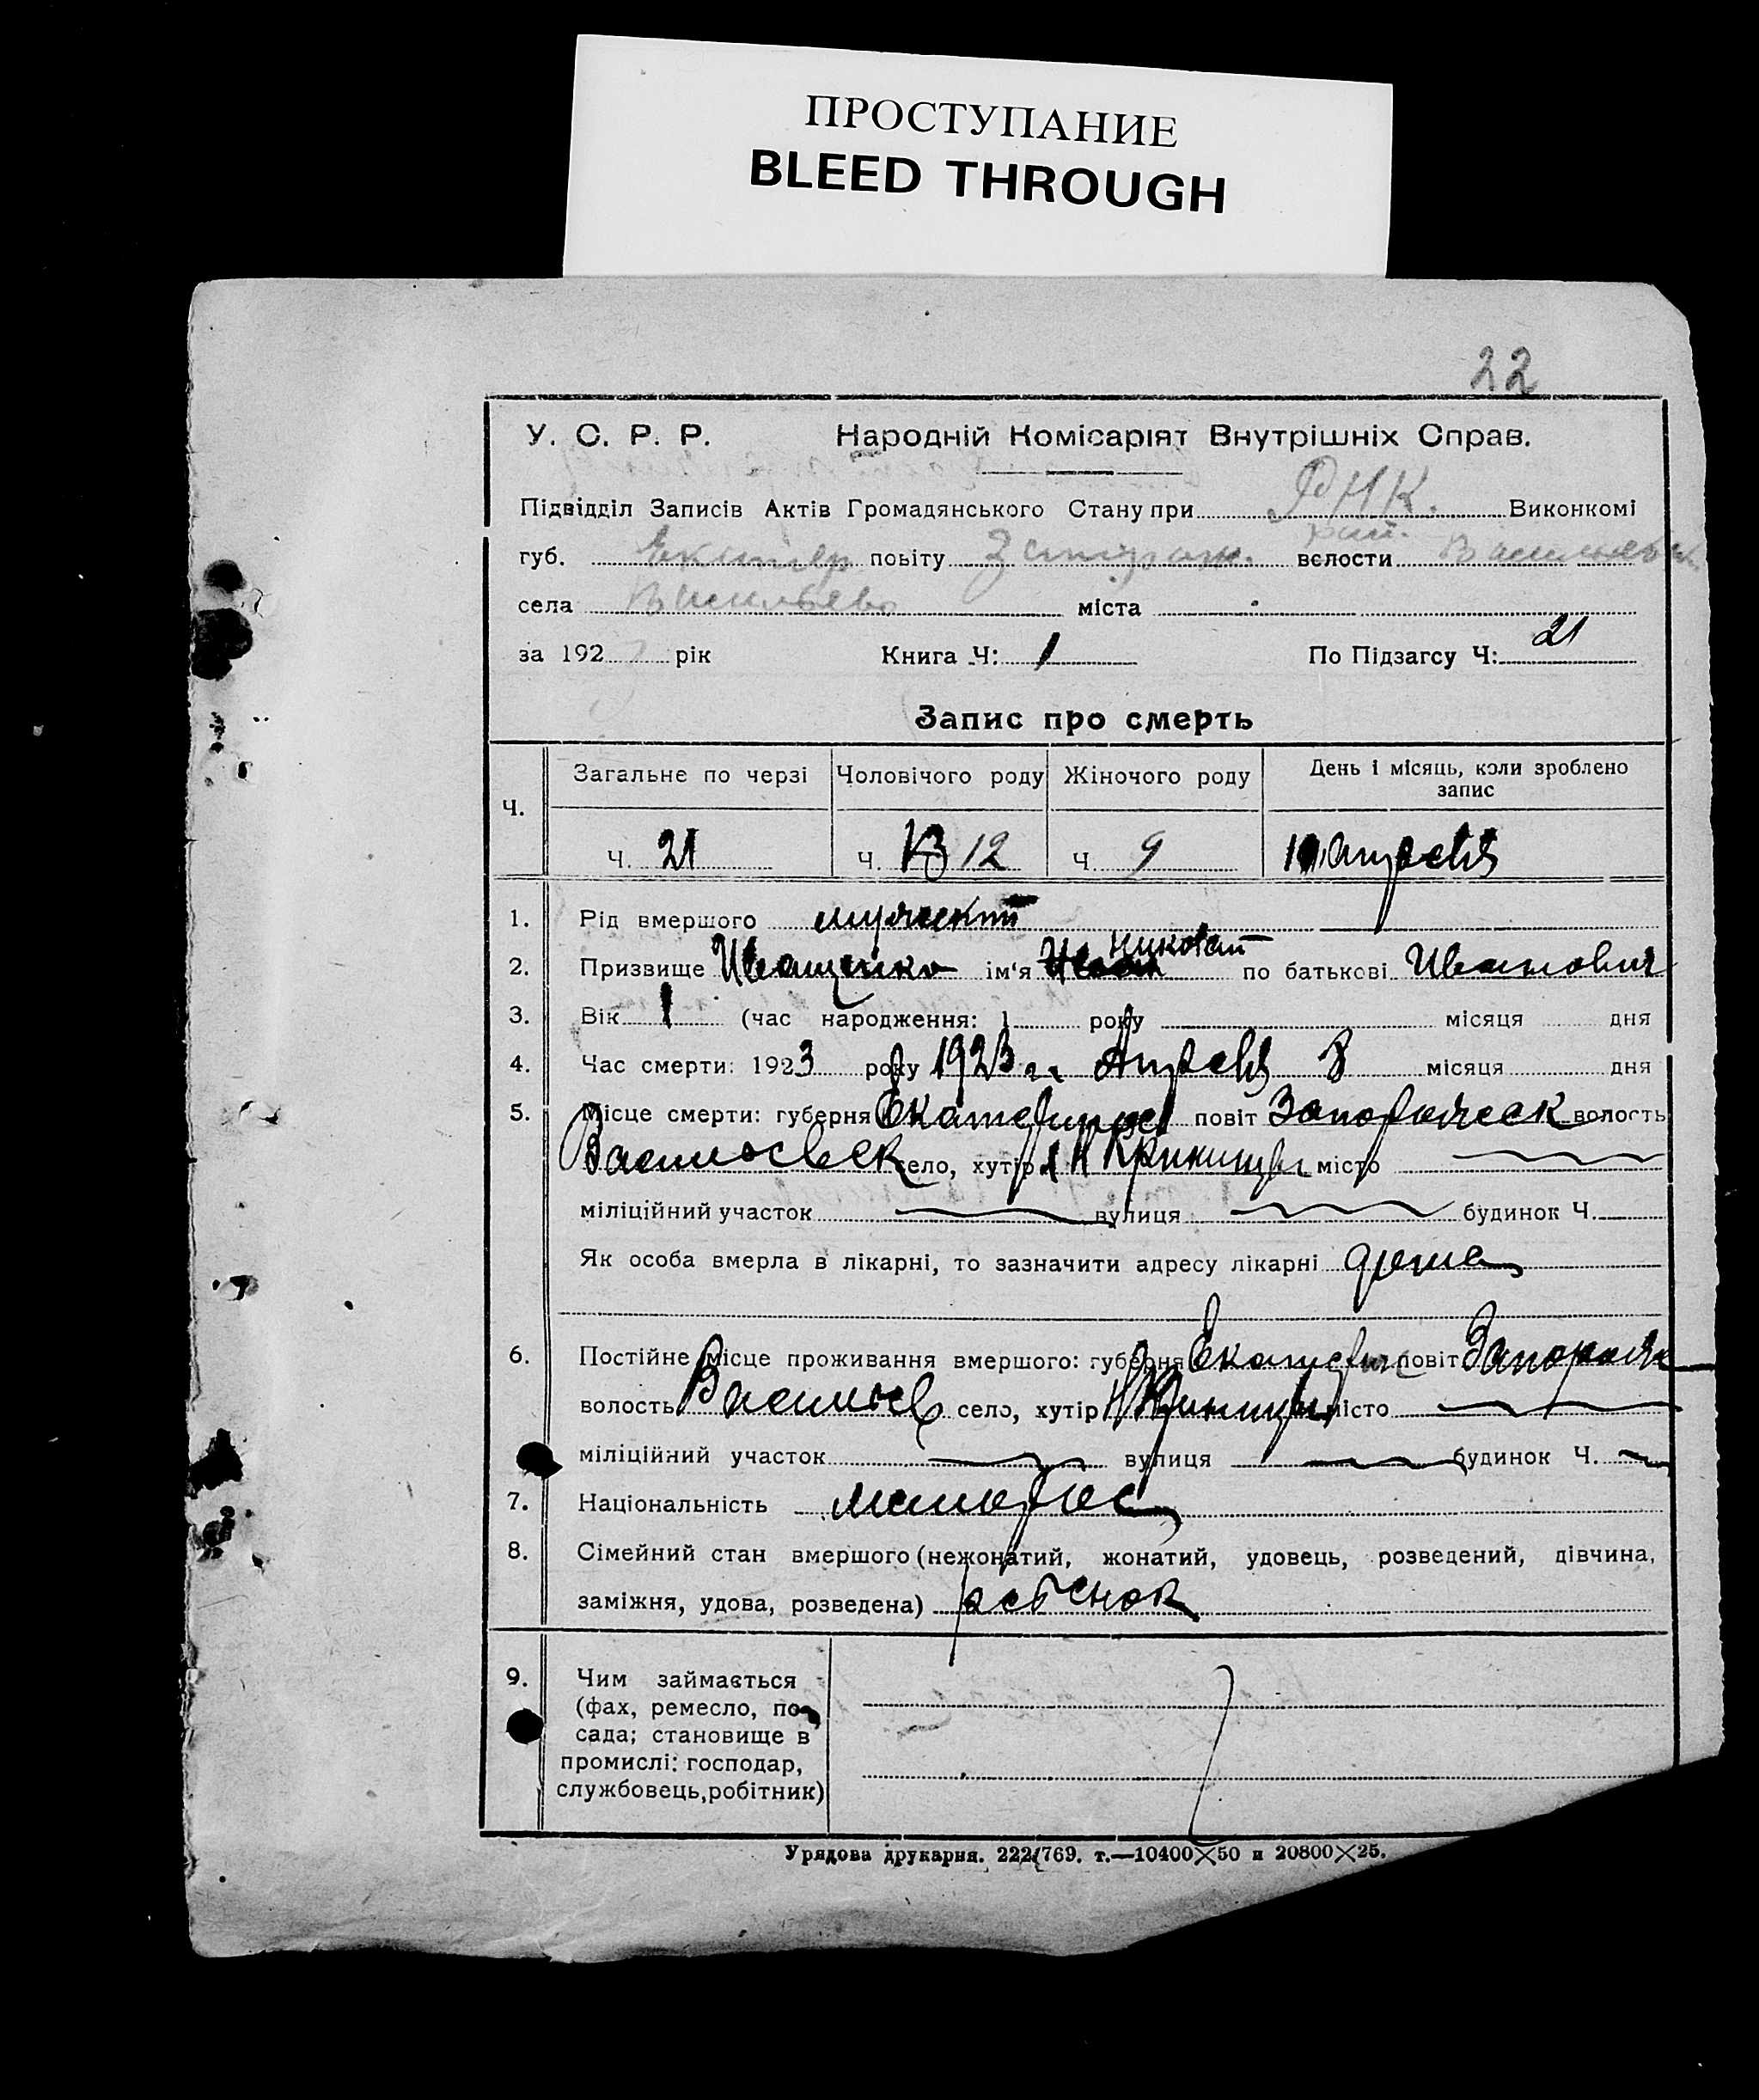 ПРОСТУПАНИЕ
BLEED THROUGH
22
У. С. Р. Р. Народній Комісаріят Внутрішніх Справ.
Підвідділ Записів Актів Громадянського Стану при РИК. Виконкомі
губ. Екатер повіту Запорож. рай. волости Васильевск
села Васильево міста
за 192 рік Книга Ч: 1 По Підзагсу Ч: 21
Запис про смерть
Ч. Загальне по черзі Чоловічого роду Жіночого роду День і місяць, коли зроблено запис
Ч. 21 Ч. 13 12 Ч. 9 апреля
1. Рід вмершого мужской
2. Призвище Иващенко ім'я Иван Николай по батькові Иванович
3. Вік 1 (час народження: 1 року місяця дня
4. Час смерти: 1923 року 1923 г. Апреля 8 місяця дня
5. Місце смерти: губерня Екатеринос повіт Запорожск волость
Васильевск село, хутір Криницы місто
міліційний участок вулиця будинок Ч.
Як особа вмерла в лікарні, то зазначити адресу лікарні дома
6. Постійне місце проживання вмершого: губерня Екатерин повіт Запорож
волость Васильев село, хутір Н Криницы місто
міліційний участок вулиця будинок Ч.
7. Національність малорос
8. Сімейний стан вмершого (нежонатий, жонатий, удовець, розведений, дівчина,
заміжня, удова, розведена) ребенок
9. Чим займається
(фах, ремесло, по-
сада; становище в
промислі: господар,
службовець, робітник)
Урядова друкарня. 222/769. т.—10400×50 и 20800×25.